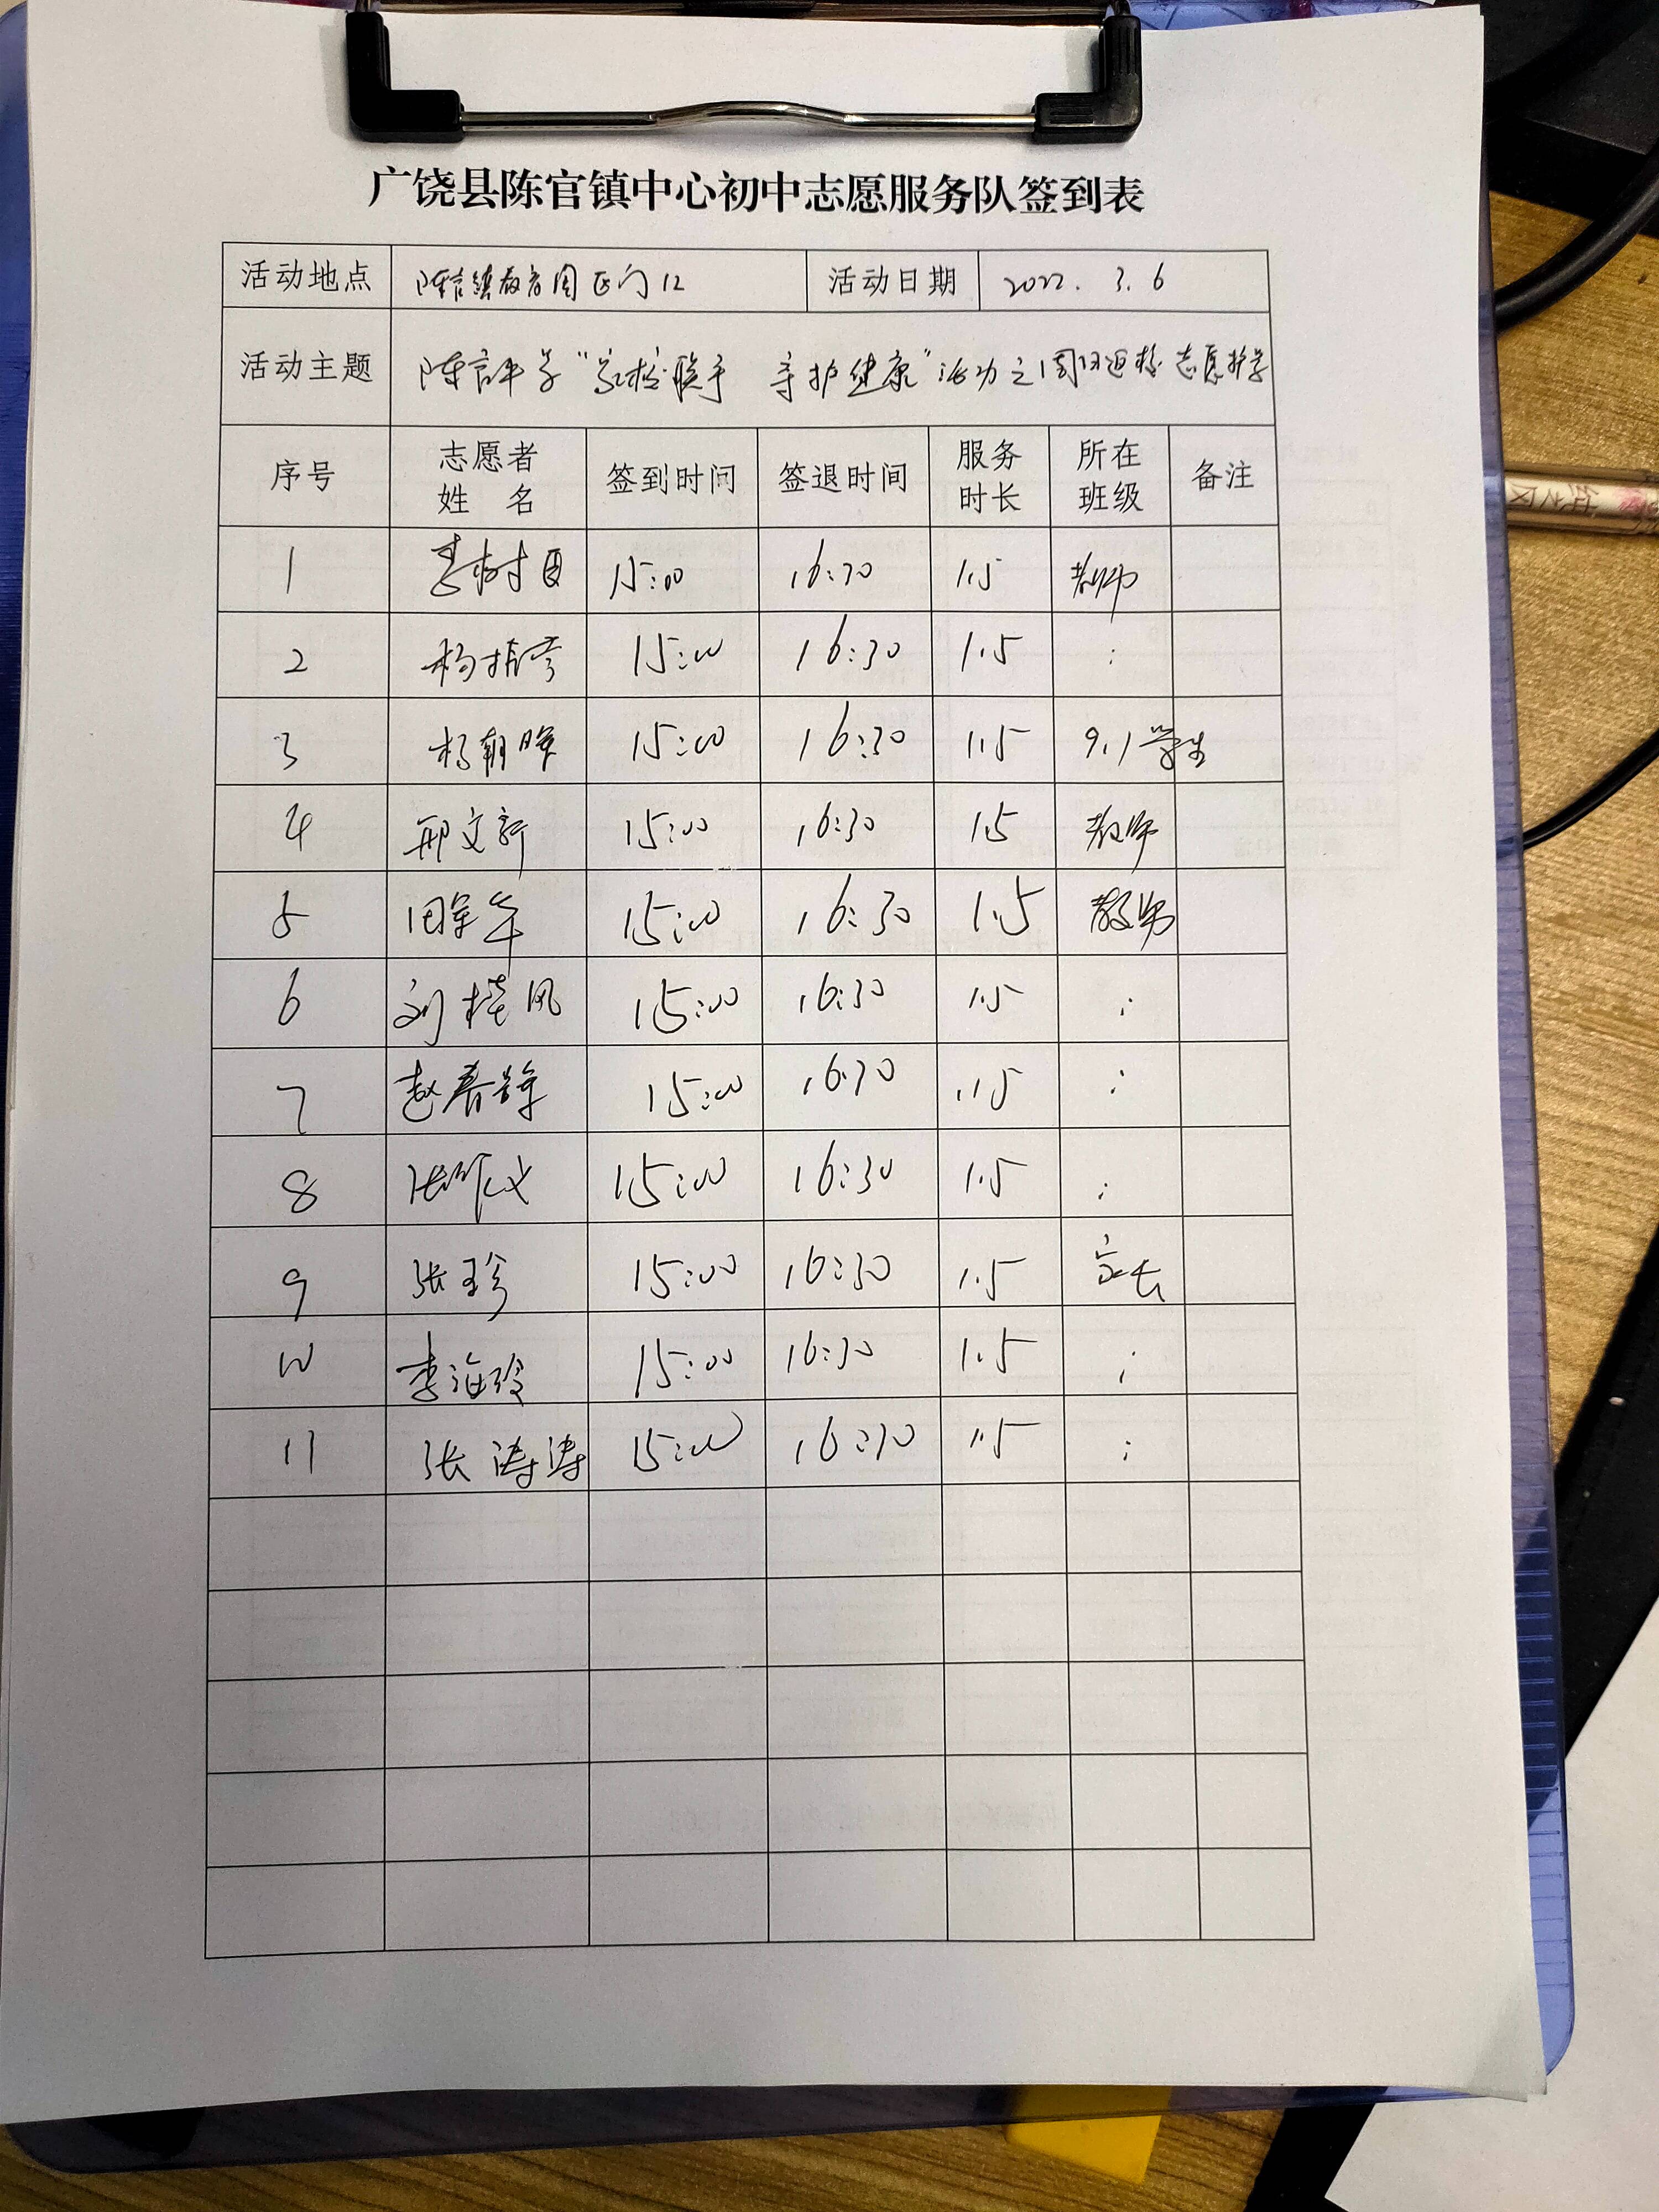 广饶县陈官镇中心初中志愿服务队签到表
活动地点 陈官镇教育园区门口 活动日期 2022. 3. 6
活动主题 陈官中学“家校联手 守护健康”活动之周日返校志愿护学
序号 志愿者姓 名 签到时间 签退时间 服务时长 所在班级 备注
1 15:00 16:30 1.5 教师
2 15:00 16:30 1.5 :
3 杨朝晖 15:00 16:30 1.5 9.1学生
4 邢文新 15:00 16:30 1.5 教师
5 15:00 16:30 1.5 教师
6 刘桂风 15:00 16:30 1.5 :
7 赵春辉 15:00 16:30 1.5 :
8 15:00 16:30 1.5 :
9 张珍 15:00 16:30 1.5 家长
10 李海玲 15:00 16:30 1.5 :
11 张涛涛 15:00 16:30 1.5 :